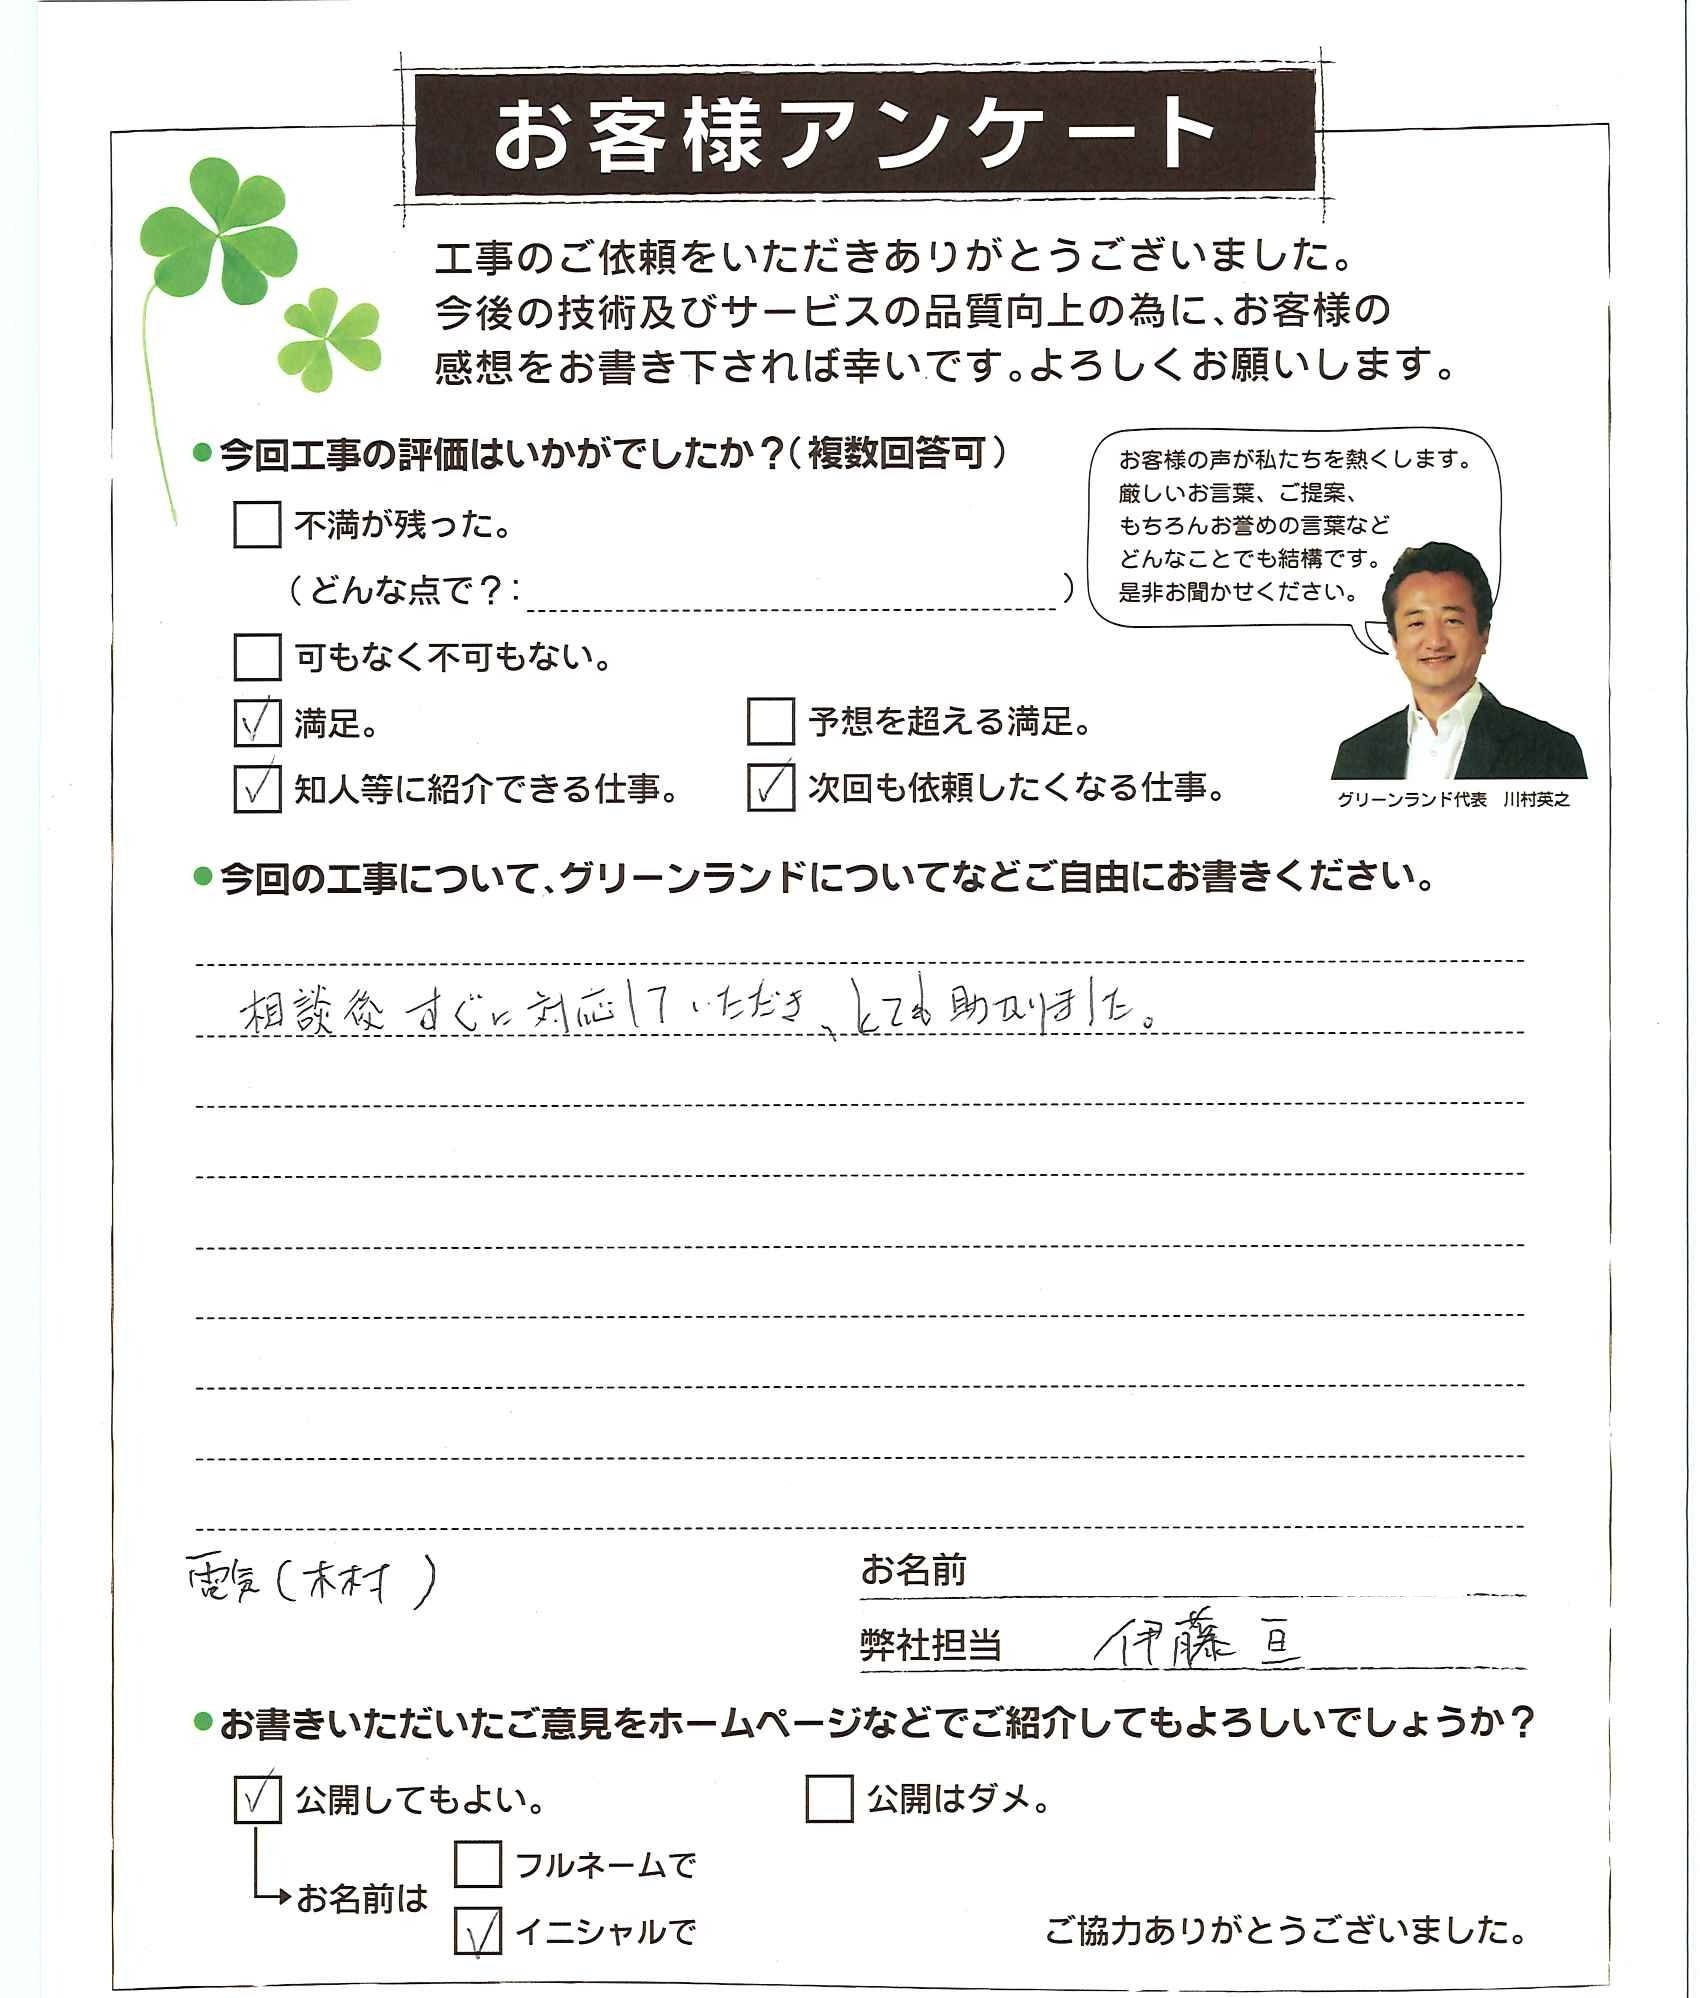 お客様アンケート
工事のご依頼をいただきありがとうございました。
今後の技術及びサービスの品質向上の為に、お客様の
感想をお書き下されば幸いです。よろしくお願いします。
●今回工事の評価はいかがでしたか？（複数回答可）
お客様の声が私たちを熱くします。
厳しいお言葉、ご提案、
もちろんお誉めの言葉など
どんなことでも結構です。
是非お聞かせください。
グリーンランド代表　川村英之
不満が残った。
（どんな点で？：　）
可もなく不可もない。
満足。　予想を超える満足。
知人等に紹介できる仕事。　次回も依頼したくなる仕事。
●今回の工事について、グリーンランドについてなどご自由にお書きください。
相談後すぐに対応していただき、とても助かりました。
電気（木村）
お名前
弊社担当　伊藤 亘
●お書きいただいたご意見をホームページなどでご紹介してもよろしいでしょうか？
公開してもよい。　公開はダメ。
お名前は
フルネームで
イニシャルで
ご協力ありがとうございました。